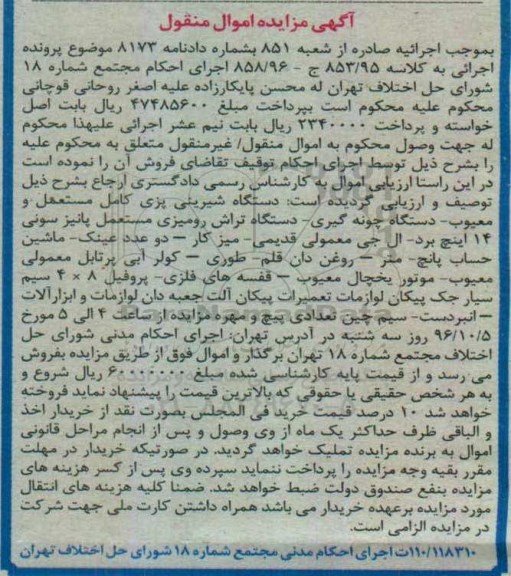 آگهی مزایده اموال منقول
بموجب اجرائیه صادره از شعبه ۸۵۱ بشماره دادنامه ۸۱۷۳ موضوع پرونده
اجرائی به کلاسه ۸۵۳/۹۵ ج - ۸۵۸/۹۶ اجرای احکام مجتمع شماره ۱۸
شورای حل اختلاف تهران له محسن پایکارزاده علیه اصغر روحانی قوچانی
محکوم علیه محکوم است بپرداخت مبلغ ۴۷۴۸۵۶۰۰ ریال بابت اصل
خواسته و پرداخت ۲۳۴۰۰۰۰ ریال بابت نیم عشر اجرائی علیهذا محکوم
له جهت وصول محکوم به اموال منقول/ غیرمنقول متعلق به محکوم علیه
را بشرح ذیل توسط اجرای احکام توقیف تقاضای فروش آن را نموده است
در این راستا ارزیابی اموال به کارشناس رسمی دادگستری ارجاع بشرح ذیل
توصیف و ارزیابی گردیده است: دستگاه شیرینی پزی کامل مستعمل و
معیوب- دستگاه چونه گیری- دستگاه تراش رومیزی مستعمل پانیز سونی
۱۴ اینچ برد- ال جی معمولی قدیمی- میز کار – دو عدد عینک- ماشین
حساب پانچ- متر – روغن دان قلم- طوری – کولر آبی پرتابل معمولی
معیوب- موتور یخچال معیوب – قفسه های فلزی- پروفیل ۸ × ۴ سیم
سیار جک پیکان لوازمات تعمیرات پیکان آلت جعبه دان لوازمات و ابزارآلات
– انبردست- سیم چین تعدادی پیچ و مهره مزایده از ساعت ۴ الی ۵ مورخ
۹۶/۱۰/۵ روز سه شنبه در آدرس تهران: اجرای احکام مدنی شورای حل
اختلاف مجتمع شماره ۱۸ تهران برگذار و اموال فوق از طریق مزایده بفروش
می رسد و از قیمت پایه کارشناسی شده مبلغ ۶۰۰۰۰۰۰۰ ریال شروع و
به هر شخص حقیقی یا حقوقی که بالاترین قیمت را پیشنهاد نماید فروخته
خواهد شد ۱۰ درصد قیمت خرید فی المجلس بصورت نقد از خریدار اخذ
و الباقی ظرف حداکثر یک ماه از وی وصول و پس از انجام مراحل قانونی
اموال به برنده مزایده تملیک خواهد گردید. در صورتیکه خریدار در مهلت
مقرر بقیه وجه مزایده را پرداخت ننماید سپرده وی پس از کسر هزینه های
مزایده بنفع صندوق دولت ضبط خواهد شد. ضمنا کلیه هزینه های انتقال
مورد مزایده برعهده خریدار می باشد همراه داشتن کارت ملی جهت شرکت
در مزایده الزامی است.
۱۱۰/۱۱۸۳۱۰ت اجرای احکام مدنی مجتمع شماره ۱۸ شورای حل اختلاف تهران